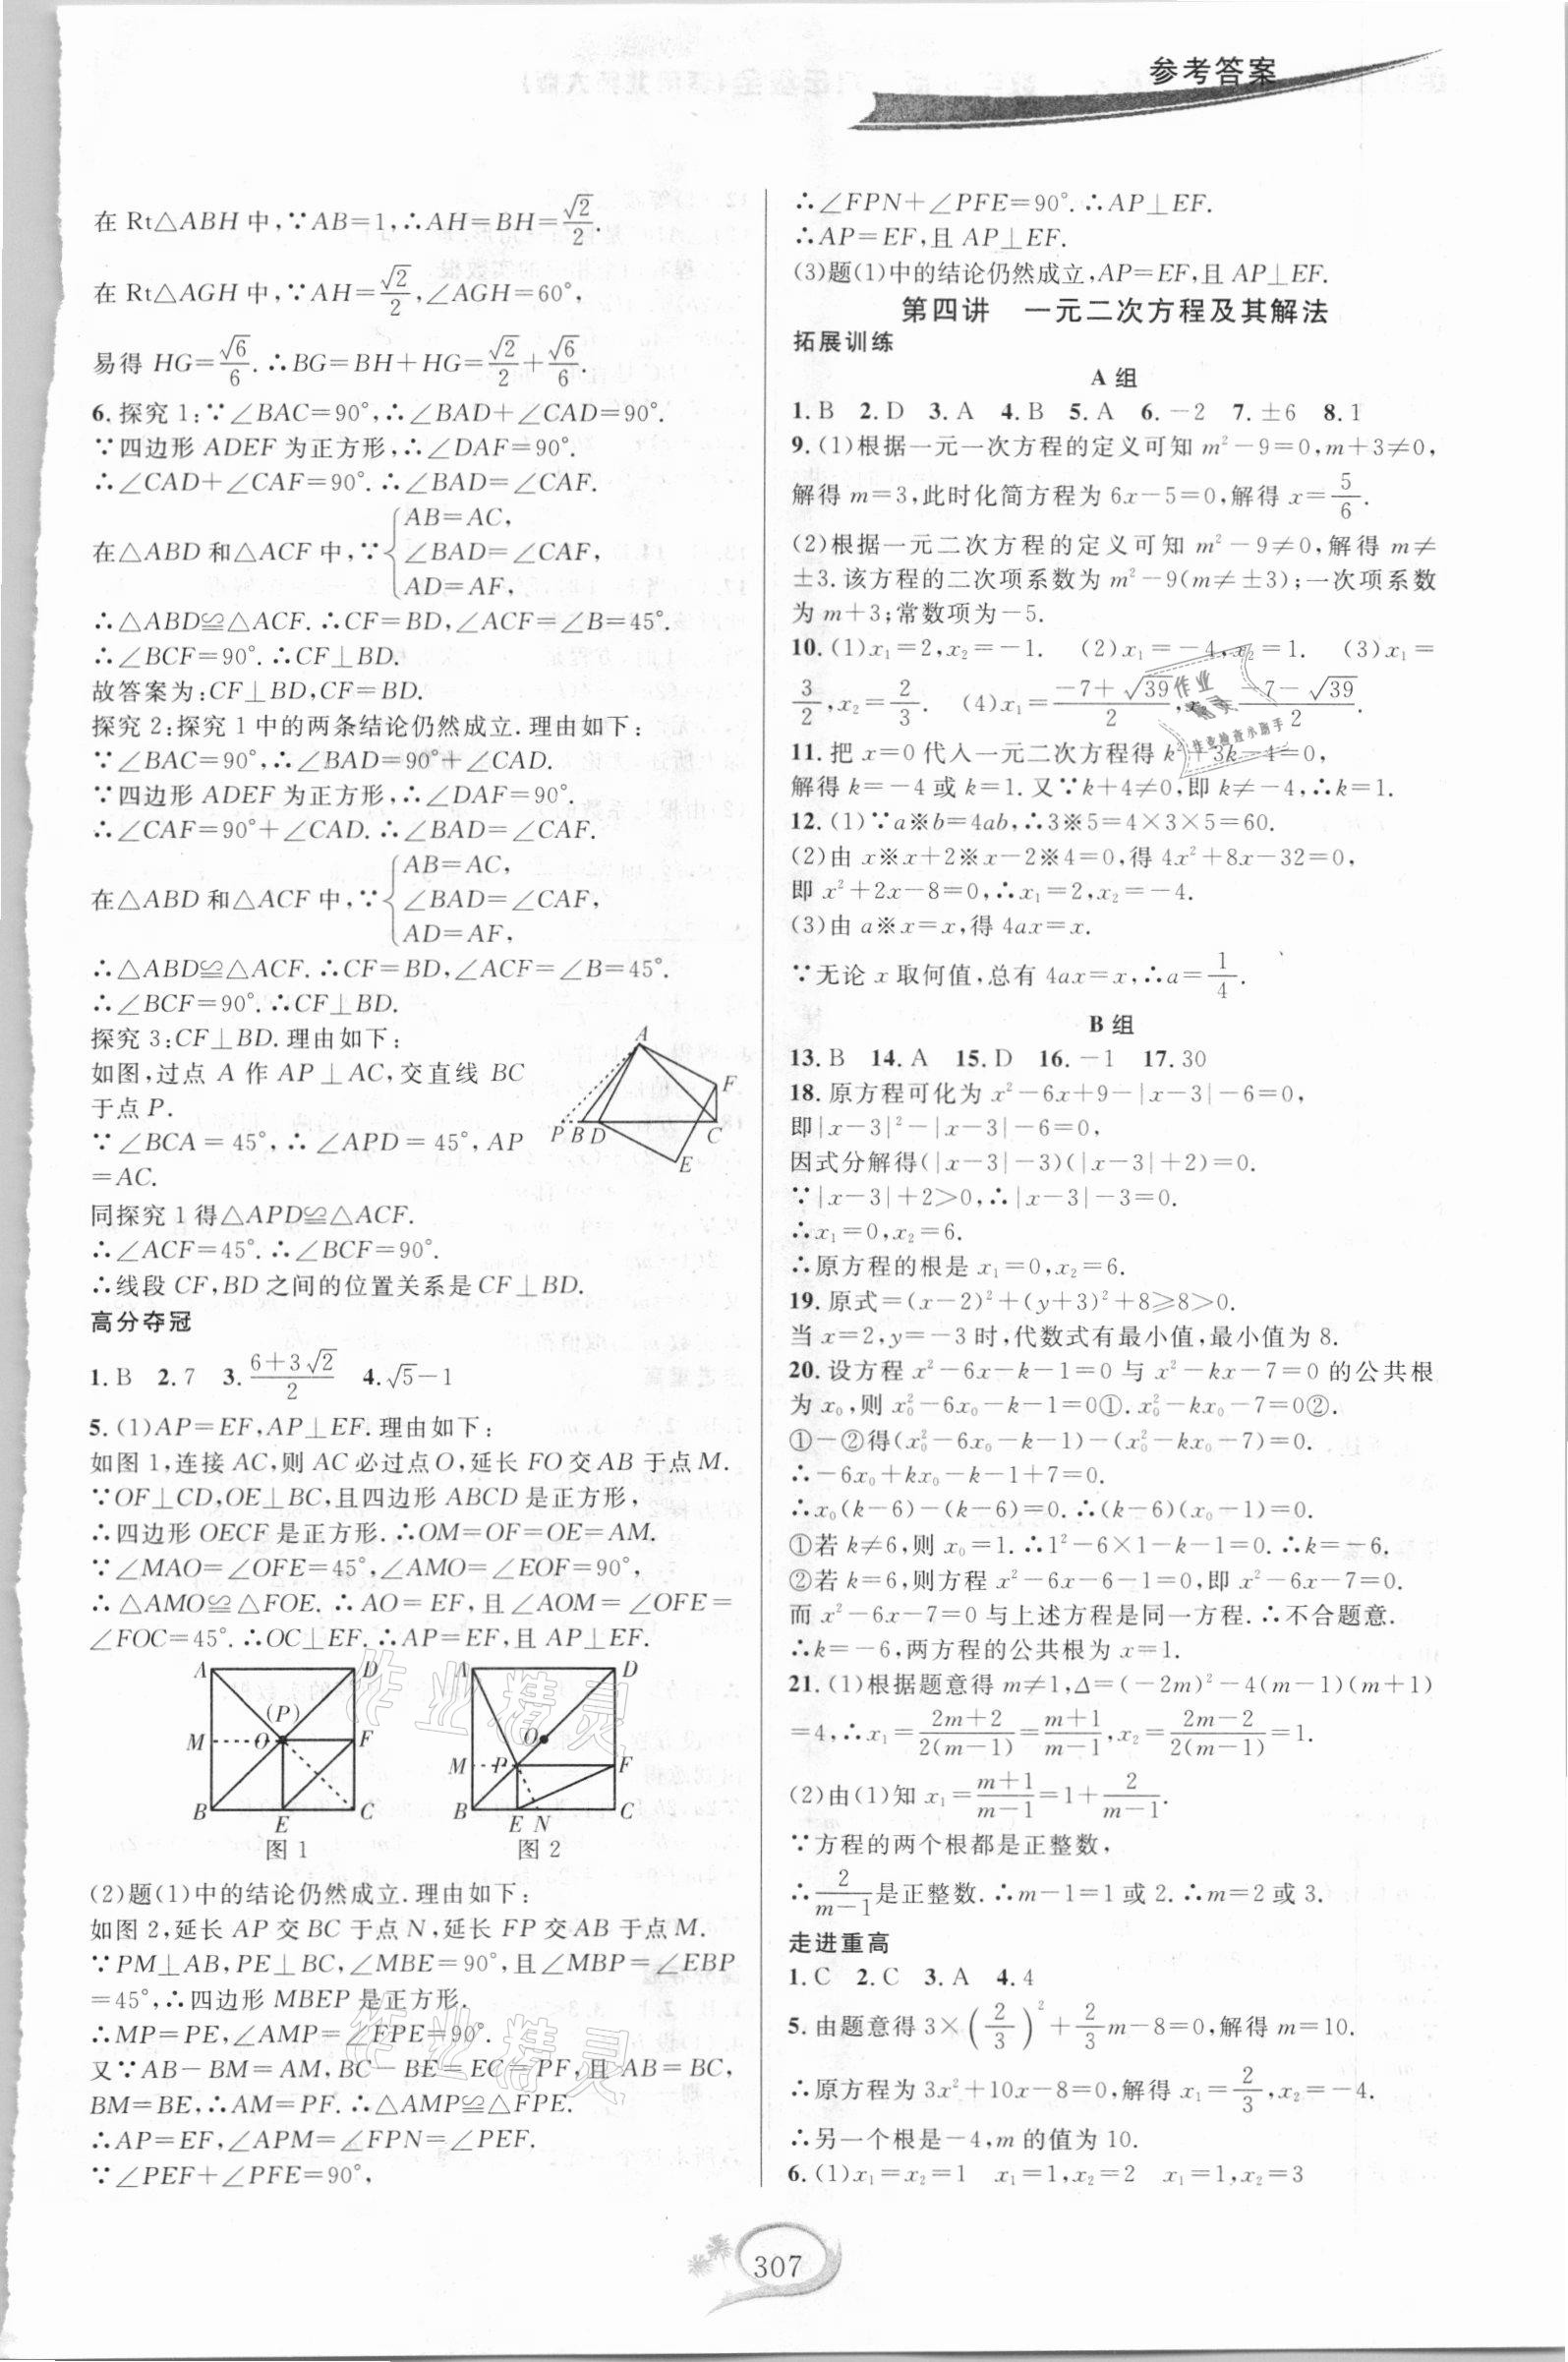 参考答案
在 Rt△ABH 中,∵AB=1,∴AH=BH=√2/2.
在 Rt△AGH 中,∵AH=√2/2,∠AGH=60°,
易得 HG=√6/6.∴BG=BH+HG=√2/2+√6/6.
6.探究 1:∵∠BAC=90°,∴∠BAD+∠CAD=90°.
∵四边形 ADEF 为正方形,∴∠DAF=90°.
∴∠CAD+∠CAF=90°.∴∠BAD=∠CAF.
AB=AC,
在△ABD 和△ACF 中,∵{∠BAD=∠CAF,
AD=AF,
∴△ABD≌△ACF.∴CF=BD,∠ACF=∠B=45°.
∴∠BCF=90°.∴CF⊥BD.
故答案为:CF⊥BD,CF=BD.
探究 2:探究 1 中的两条结论仍然成立.理由如下:
∵∠BAC=90°,∴∠BAD=90°+∠CAD.
∵四边形 ADEF 为正方形,∴∠DAF=90°.
∴∠CAF=90°+∠CAD.∴∠BAD=∠CAF.
AB=AC,
在△ABD 和△ACF 中,∵{∠BAD=∠CAF,
AD=AF,
∴△ABD≌△ACF.∴CF=BD,∠ACF=∠B=45°.
∴∠BCF=90°.∴CF⊥BD.
探究 3:CF⊥BD.理由如下:
如图,过点 A 作 AP⊥AC,交直线 BC
于点 P.
∵∠BCA=45°,∴∠APD=45°,AP
=AC.
A
F
P B D C
E
同探究 1 得△APD≌△ACF.
∴∠ACF=45°.∴∠BCF=90°.
∴线段 CF,BD 之间的位置关系是 CF⊥BD.
高分夺冠
1.B 2.7 3.(6+3√2)/2 4.√5-1
5.(1)AP=EF,AP⊥EF.理由如下:
如图 1,连接 AC,则 AC 必过点 O,延长 FO 交 AB 于点 M.
∵OF⊥CD,OE⊥BC,且四边形 ABCD 是正方形,
∴四边形 OECF 是正方形.∴OM=OF=OE=AM.
∵∠MAO=∠OFE=45°,∠AMO=∠EOF=90°,
∴△AMO≌△FOE.∴AO=EF,且∠AOM=∠OFE=
∠FOC=45°.∴OC⊥EF.∴AP=EF,且 AP⊥EF.
A D
(P)
M O F
B E C
图 1
A D
O
M P F
B E N C
图 2
(2)题(1)中的结论仍然成立.理由如下:
如图 2,延长 AP 交 BC 于点 N,延长 FP 交 AB 于点 M.
∵PM⊥AB,PE⊥BC,∠MBE=90°,且∠MBP=∠EBP
=45°,∴四边形 MBEP 是正方形.
∴MP=PE,∠AMP=∠FPE=90°.
又∵AB-BM=AM,BC-BE=EC=PF,且 AB=BC,
BM=BE,∴AM=PF.∴△AMP≌△FPE.
∴AP=EF,∠APM=∠FPN=∠PEF.
∵∠PEF+∠PFE=90°,
∴∠FPN+∠PFE=90°.∴AP⊥EF.
∴AP=EF,且 AP⊥EF.
(3)题(1)中的结论仍然成立,AP=EF,且 AP⊥EF.
第四讲 一元二次方程及其解法
拓展训练
A 组
1.B 2.D 3.A 4.B 5.A 6.-2 7.±6 8.1
9.(1)根据一元一次方程的定义可知 m²-9=0,m+3≠0,
解得 m=3,此时化简方程为 6x-5=0,解得 x=5/6.
(2)根据一元二次方程的定义可知 m²-9≠0,解得 m≠
±3.该方程的二次项系数为 m²-9(m≠±3);一次项系数
为 m+3;常数项为-5.
10.(1)x₁=2,x₂=-1. (2)x₁=-4,x₂=1. (3)x₁=
3/2,x₂=2/3. (4)x₁=(-7+√39)/2, (-7-√39)/2.
11.把 x=0 代入一元二次方程得 k²+3k-4=0,
解得 k=-4 或 k=1.又∵k+4≠0,即 k≠-4,∴k=1.
12.(1)∵a※b=4ab,∴3※5=4×3×5=60.
(2)由 x※x+2※x-2※4=0,得 4x²+8x-32=0,
即 x²+2x-8=0,∴x₁=2,x₂=-4.
(3)由 a※x=x,得 4ax=x.
∵无论 x 取何值,总有 4ax=x,∴a=1/4.
B 组
13.B 14.A 15.D 16.-1 17.30
18.原方程可化为 x²-6x+9-|x-3|-6=0,
即|x-3|²-|x-3|-6=0,
因式分解得(|x-3|-3)(|x-3|+2)=0.
∵|x-3|+2>0,∴|x-3|-3=0.
∴x₁=0,x₂=6.
∴原方程的根是 x₁=0,x₂=6.
19.原式=(x-2)²+(y+3)²+8≥8>0.
当 x=2,y=-3 时,代数式有最小值,最小值为 8.
20.设方程 x²-6x-k-1=0 与 x²-kx-7=0 的公共根
为 x₀,则 x₀²-6x₀-k-1=0①.x₀²-kx₀-7=0②.
①-②得(x₀²-6x₀-k-1)-(x₀²-kx₀-7)=0.
∴-6x₀+kx₀-k-1+7=0.
∴x₀(k-6)-(k-6)=0.∴(k-6)(x₀-1)=0.
①若 k≠6,则 x₀=1.∴1²-6×1-k-1=0.∴k=-6.
②若 k=6,则方程 x²-6x-6-1=0,即 x²-6x-7=0.
而 x²-6x-7=0 与上述方程是同一方程.∴不合题意.
∴k=-6,两方程的公共根为 x=1.
21.(1)根据题意得 m≠1,Δ=(-2m)²-4(m-1)(m+1)
=4,∴x₁=(2m+2)/2(m-1)=(m+1)/(m-1),x₂=(2m-2)/2(m-1)=1.
(2)由(1)知 x₁=(m+1)/(m-1)=1+2/(m-1).
∵方程的两个根都是正整数,
∴2/(m-1)是正整数.∴m-1=1 或 2.∴m=2 或 3.
走进重高
1.C 2.C 3.A 4.4
5.由题意得 3×(2/3)²+2/3m-8=0,解得 m=10.
∴原方程为 3x²+10x-8=0,解得 x₁=2/3,x₂=-4.
∴另一个根是-4,m 的值为 10.
6.(1)x₁=x₂=1 x₁=1,x₂=2 x₁=1,x₂=3
307
作业精灵
作业检查小助手
作业精灵
作业精灵